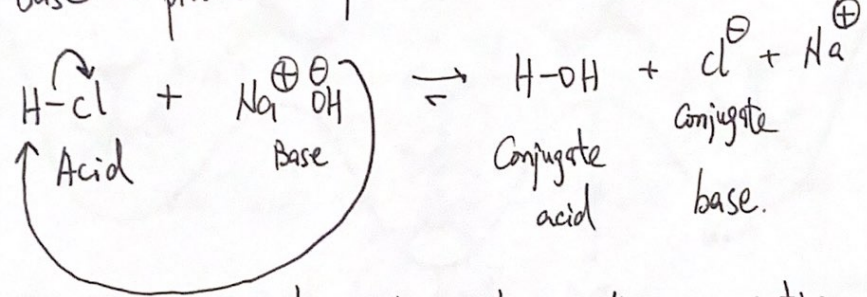 H-Cl + Na⊕ ⊖OH ⇌ H-OH + Cl⊖ + Na⊕
Acid Base Conjugate acid Conjugate base.